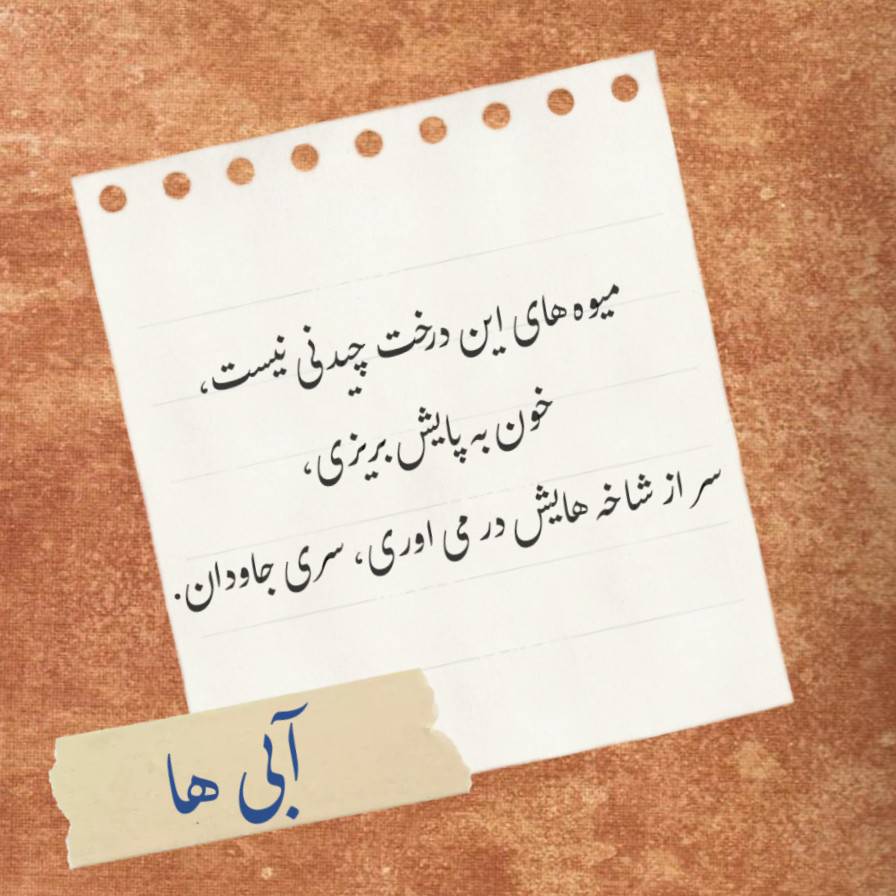 میوه های این درخت چیدنی نیست،
خون به پایش بریزی،
سر از شاخه هایش در می اوری، سری جاودان.
آبی ها